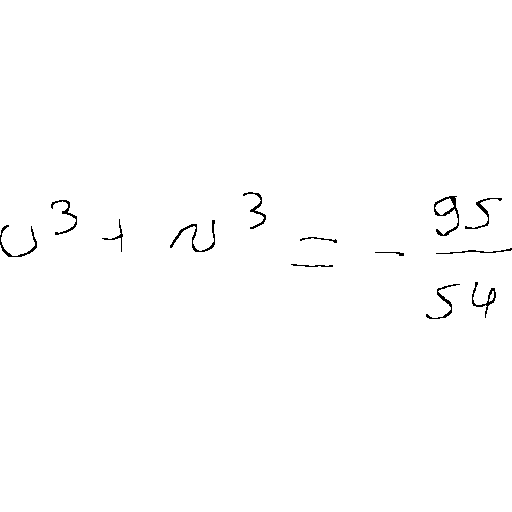 υ³ + v³ = - 95/54